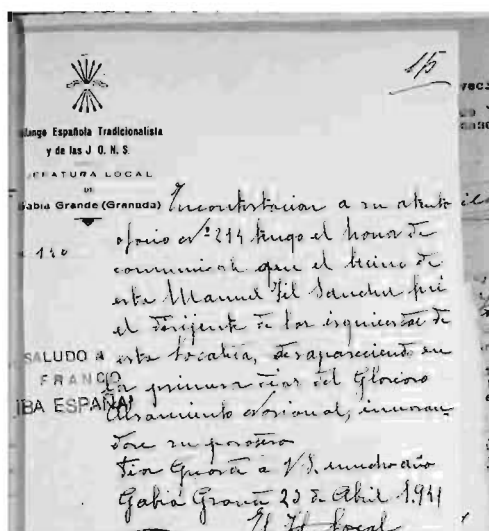 15
alange Española Tradicionalista
y de las J. O. N. S.
EFATURA LOCAL
DE
Gabia Grande (Granada)
140
En contestacion a su atento
oficio Nº 214 tengo el honor de
comunicar que el vecino de
esta Manuel Gil Sanchez fué
el dirijente de las izquierdas de
esta localia, desapareciendo en
primeros dias del Glorioso
Alzamiento Nacional, inoran
dose su paradero
SALUDO A
FRANCO
IBA ESPAÑA!
Dios Guarde a V.S. muchos años
Gabia Grande 23 de Abril 1.941
El Jf Local